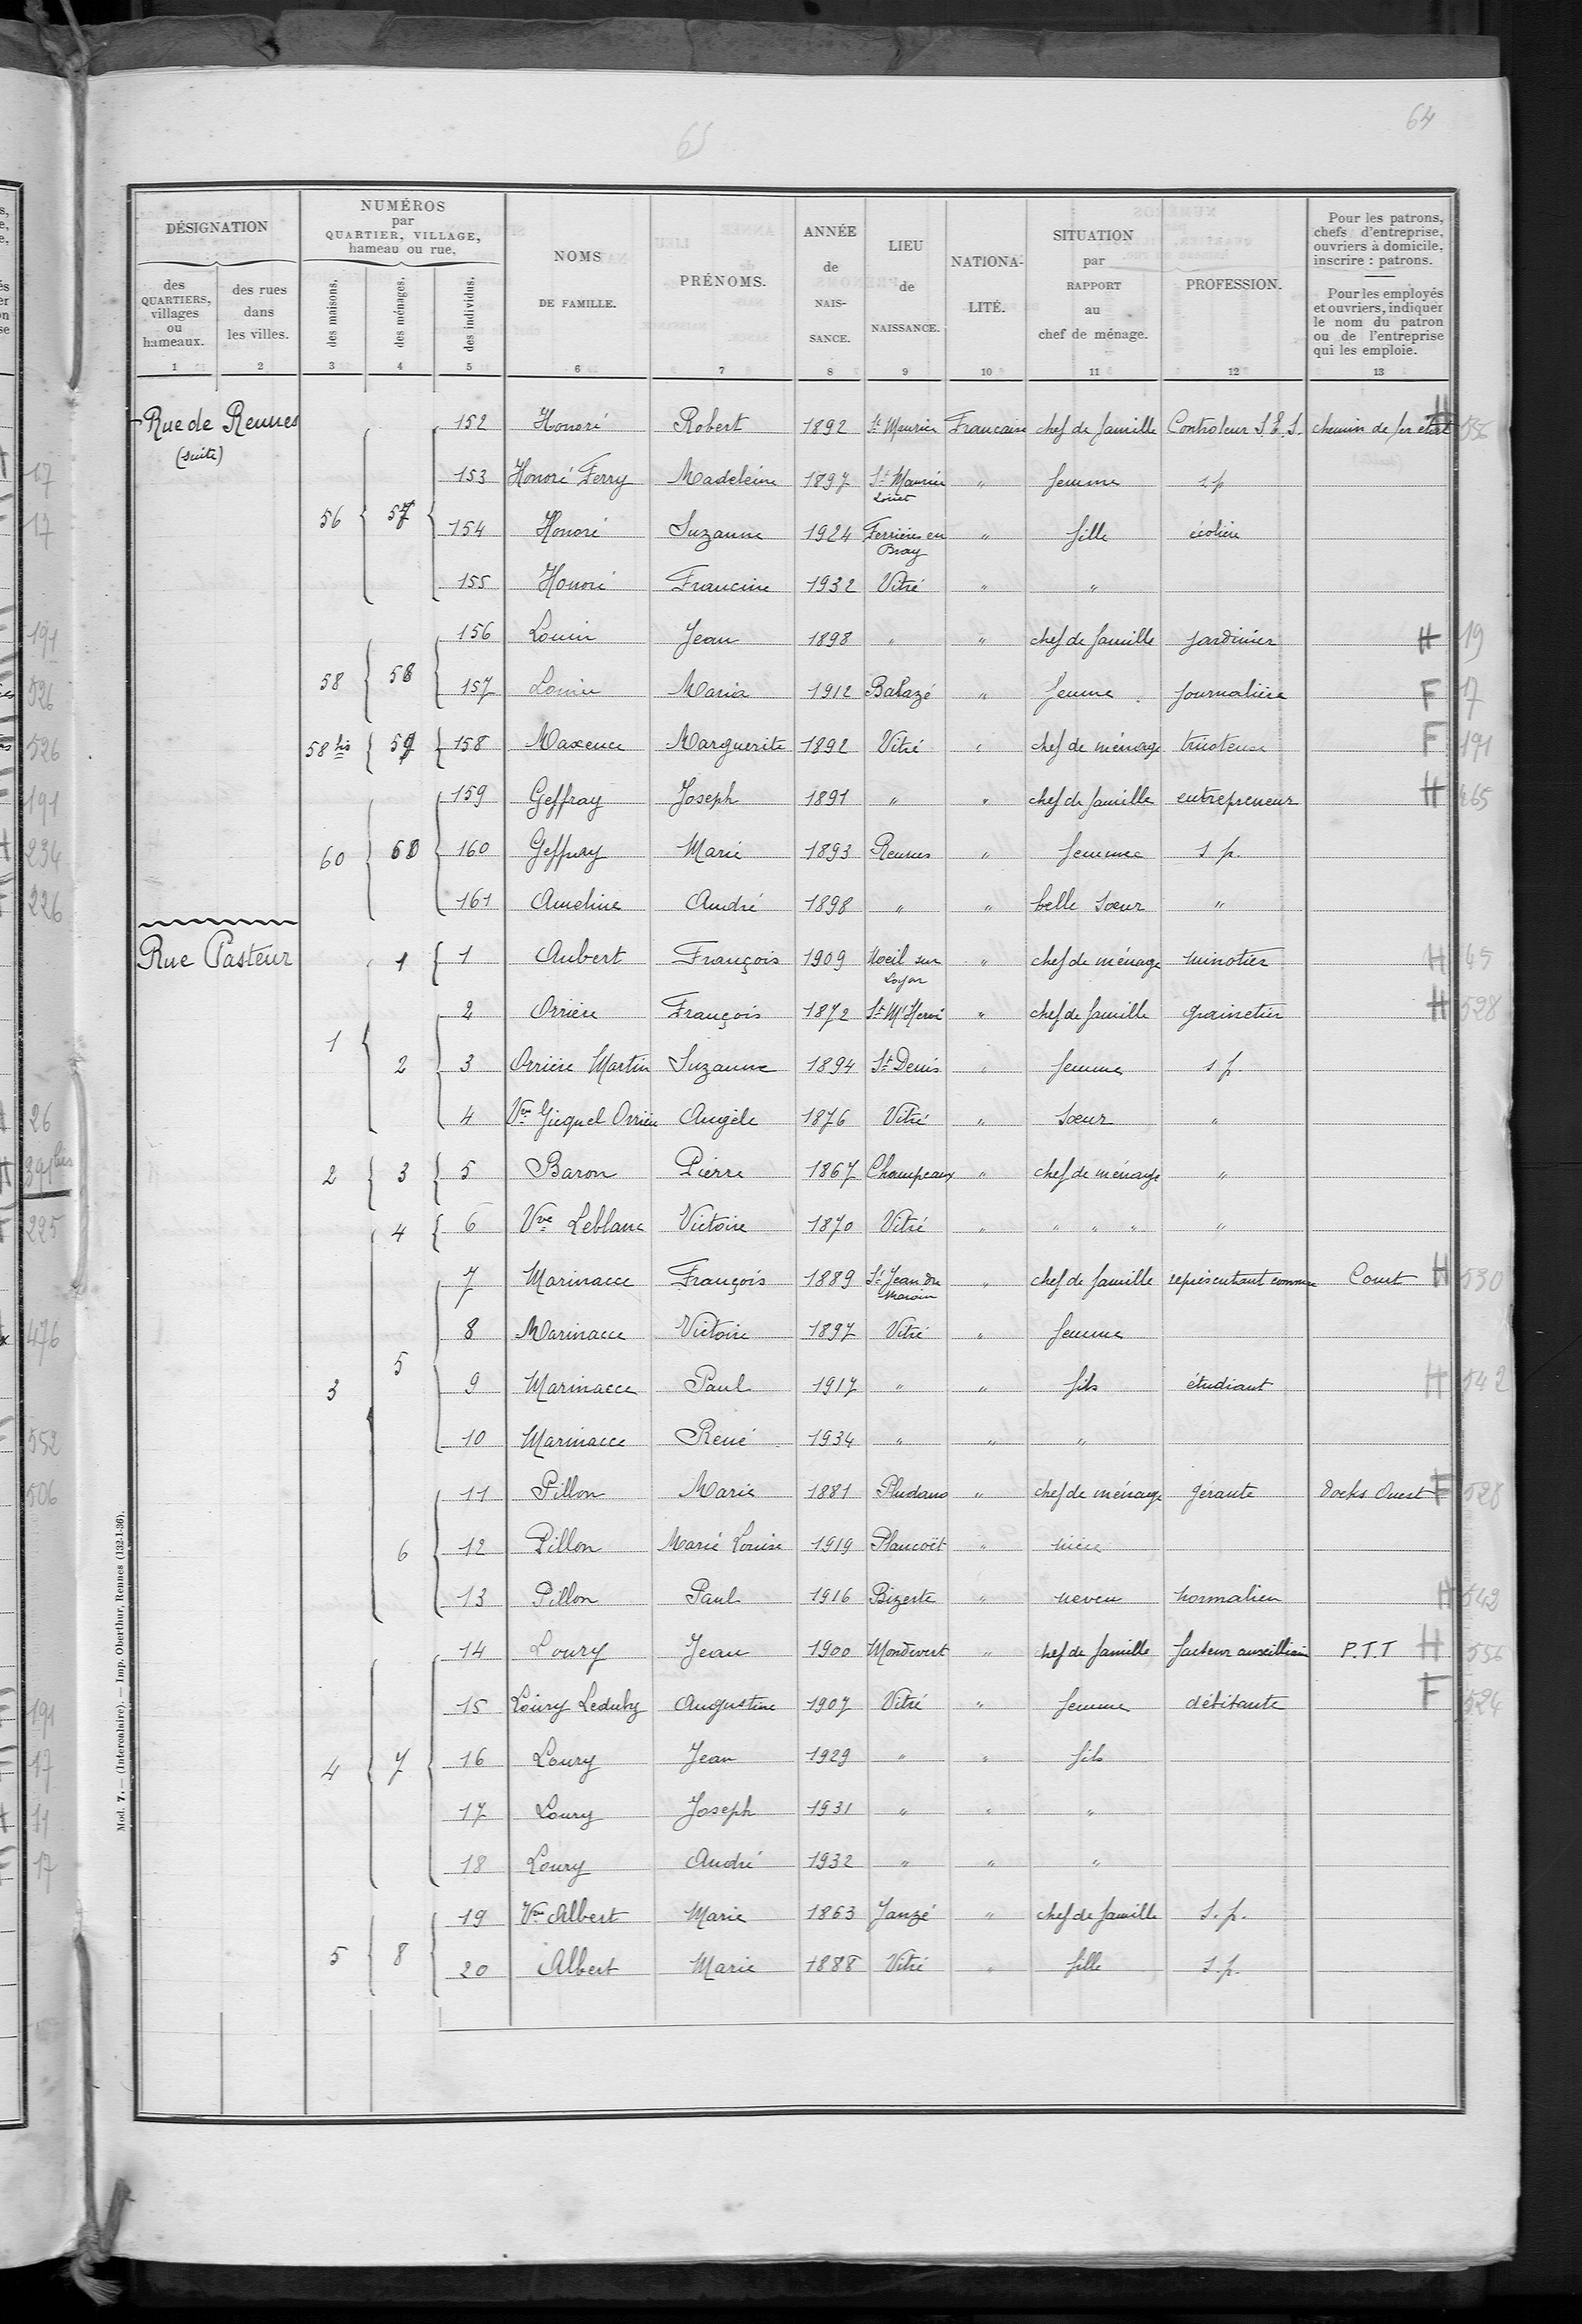 64
65
DÉSIGNATION
NUMÉROS
par
QUARTIER, VILLAGE,
hameau ou rue.
des
QUARTIERS,
villages
ou
hameaux.
des rues
dans
les villes.
des maisons.
des ménages.
des individus.
NOMS
DE FAMILLE.
PRÉNOMS.
ANNÉE
de
NAIS-
SANCE.
LIEU
de
NAISSANCE.
NATIONA-
LITÉ.
SITUATION
par
RAPPORT
au
chef de ménage.
PROFESSION.
Pour les patrons,
chefs d'entreprise,
ouvriers à domicile,
inscrire : patrons.
Pour les employés
et ouvriers, indiquer
le nom du patron
ou de l'entreprise
qui les emploie.
1 2 3 4 5 6 7 8 9 10 11 12 13
Rue de Rennes
(suite)
152 Honoré Robert 1892 St Maurice Francaise chef de famille Controleur S.E.S. chemin de fer état H 556
153 Honoré Ferry Madeleine 1897 St Maurice " femme s p
56 57 154 Honoré Suzanne 1924 Ferrières en Bray " fille écolière
155 Honoré Francine 1932 Vitré " "
156 Louin Jean 1898 " " chef de famille jardinier H 19
58 58 157 Louin Maria 1912 Balazé " femme journalière F 17
58 bis 59 158 Maxence Marguerite 1892 Vitré " chef de ménage tricoteuse F 191
159 Geffray Joseph 1891 " " chef de famille entrepreneur H 465
60 60 160 Geffray Marie 1893 Rennes " femme s p.
161 Ameline André 1898 " " belle soeur "
Rue Pasteur
1 1 Aubert François 1909 " chef de ménage minotier H 45
2 Orrière François 1872 St M' Hervé " chef de famille grainetier H 528
1 2 3 Orrière Martin Suzanne 1894 St Denis " femme s p.
4 Vve Gicquel Orrière Angèle 1876 Vitré " Soeur "
2 3 5 Baron Pierre 1867 Champeaux " chef de ménage "
4 6 Vve Leblanc Victoire 1870 Vitré " " " " "
7 Marinacce François 1889 St Jean du " chef de famille représentant comm H 530
8 Marinacce Victoire 1897 Vitré " femme
3 5 9 Marinacce Paul 1917 " " fils étudiant H 542
10 Marinacce René 1934 " " "
11 Pillon Marie 1881 " chef de ménage gérante Docks Ouest F 528
6 12 Pillon Marie Louise 1919 Plancoët " nièce
13 Pillon Paul 1916 Bizerte " neveu normalien H 542
14 Loury Jean 1900 Mondevert " chef de famille facteur auxilliaire P.T.T H 556
15 Loury Leduby Augustine 1907 Vitré " femme débitante F 524
4 7 16 Loury Jean 1929 " " fils
17 Loury Joseph 1931 " " "
18 Loury André 1932 " " "
19 Vve Albert Marie 1863 Janzé " chef de famille S. p.
5 8 20 Albert Marie 1888 Vitré " fille s. p.
Mod. 7. — (Intercalaire). — Imp. Oberthur, Rennes (132-1-36).
17
17
191
526
526
191
234
226
26
391 bis
295
476
552
506
191
17
11
17